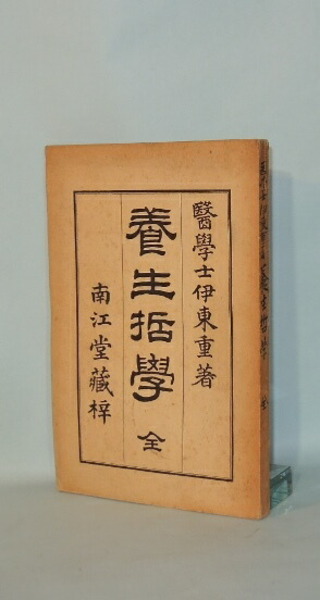 醫學士伊東重著
養生哲學 全
南江堂藏梓